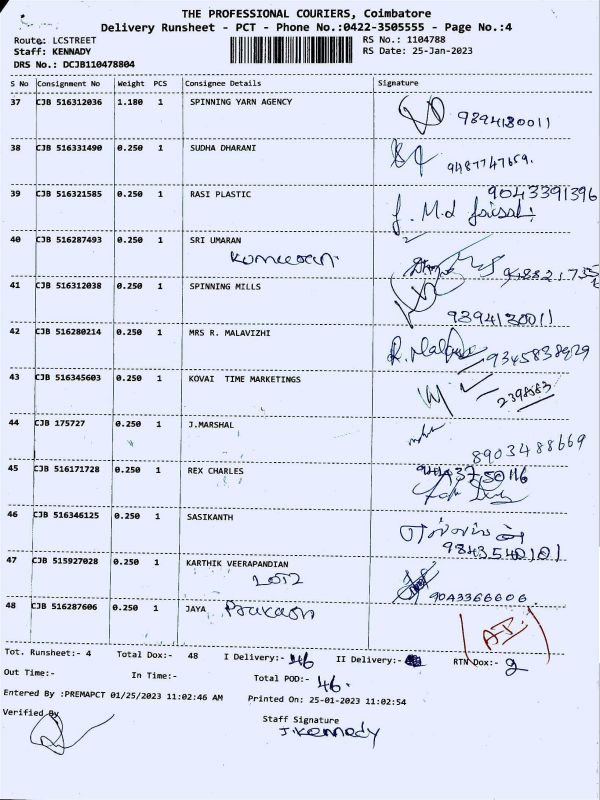 THE PROFESSIONAL COURIERS, Coimbatore
Delivery Runsheet - PCT - Phone No.:0422-3505555 - Page No.:4
Route: LCSTREET RS No.: 1104788
Staff: KENNADY RS Date: 25-Jan-2023
DRS No.: DCJB110478804
S No Consignment No Weight PCS Consignee Details Signature
37 CJB 516312036 1.180 1 SPINNING YARN AGENCY
9894130011
38 CJB 516331490 0.250 1 SUDHA DHARANI
9487747659.
39 CJB 516321585 0.250 1 RASI PLASTIC 9043391396
40 CJB 516287493 0.250 1 SRI UMARAN
Kumaran.
41 CJB 516312038 0.250 1 SPINNING MILLS
9394130011
42 CJB 516280214 0.250 1 MRS R. MALAVIZHI
43 CJB 516345603 0.250 1 KOVAI TIME MARKETINGS
2398583
44 CJB 175727 0.250 1 J.MARSHAL
8903488669
45 CJB 516171728 0.250 1 REX CHARLES
46 CJB 516346125 0.250 1 SASIKANTH
9843540101
47 CJB 515927028 0.250 1 KARTHIK VEERAPANDIAN
9043366606.
48 CJB 516287606 0.250 1 JAYA Prakash
Tot. Runsheet:- 4 Total Dox:- 48 I Delivery:- 46 II Delivery:- RTN Dox:- 2
Out Time:- In Time:- Total POD:- 46.
Entered By :PREMAPCT 01/25/2023 11:02:46 AM Printed On: 25-01-2023 11:02:54
Verified By
Staff Signature
J.Kennedy